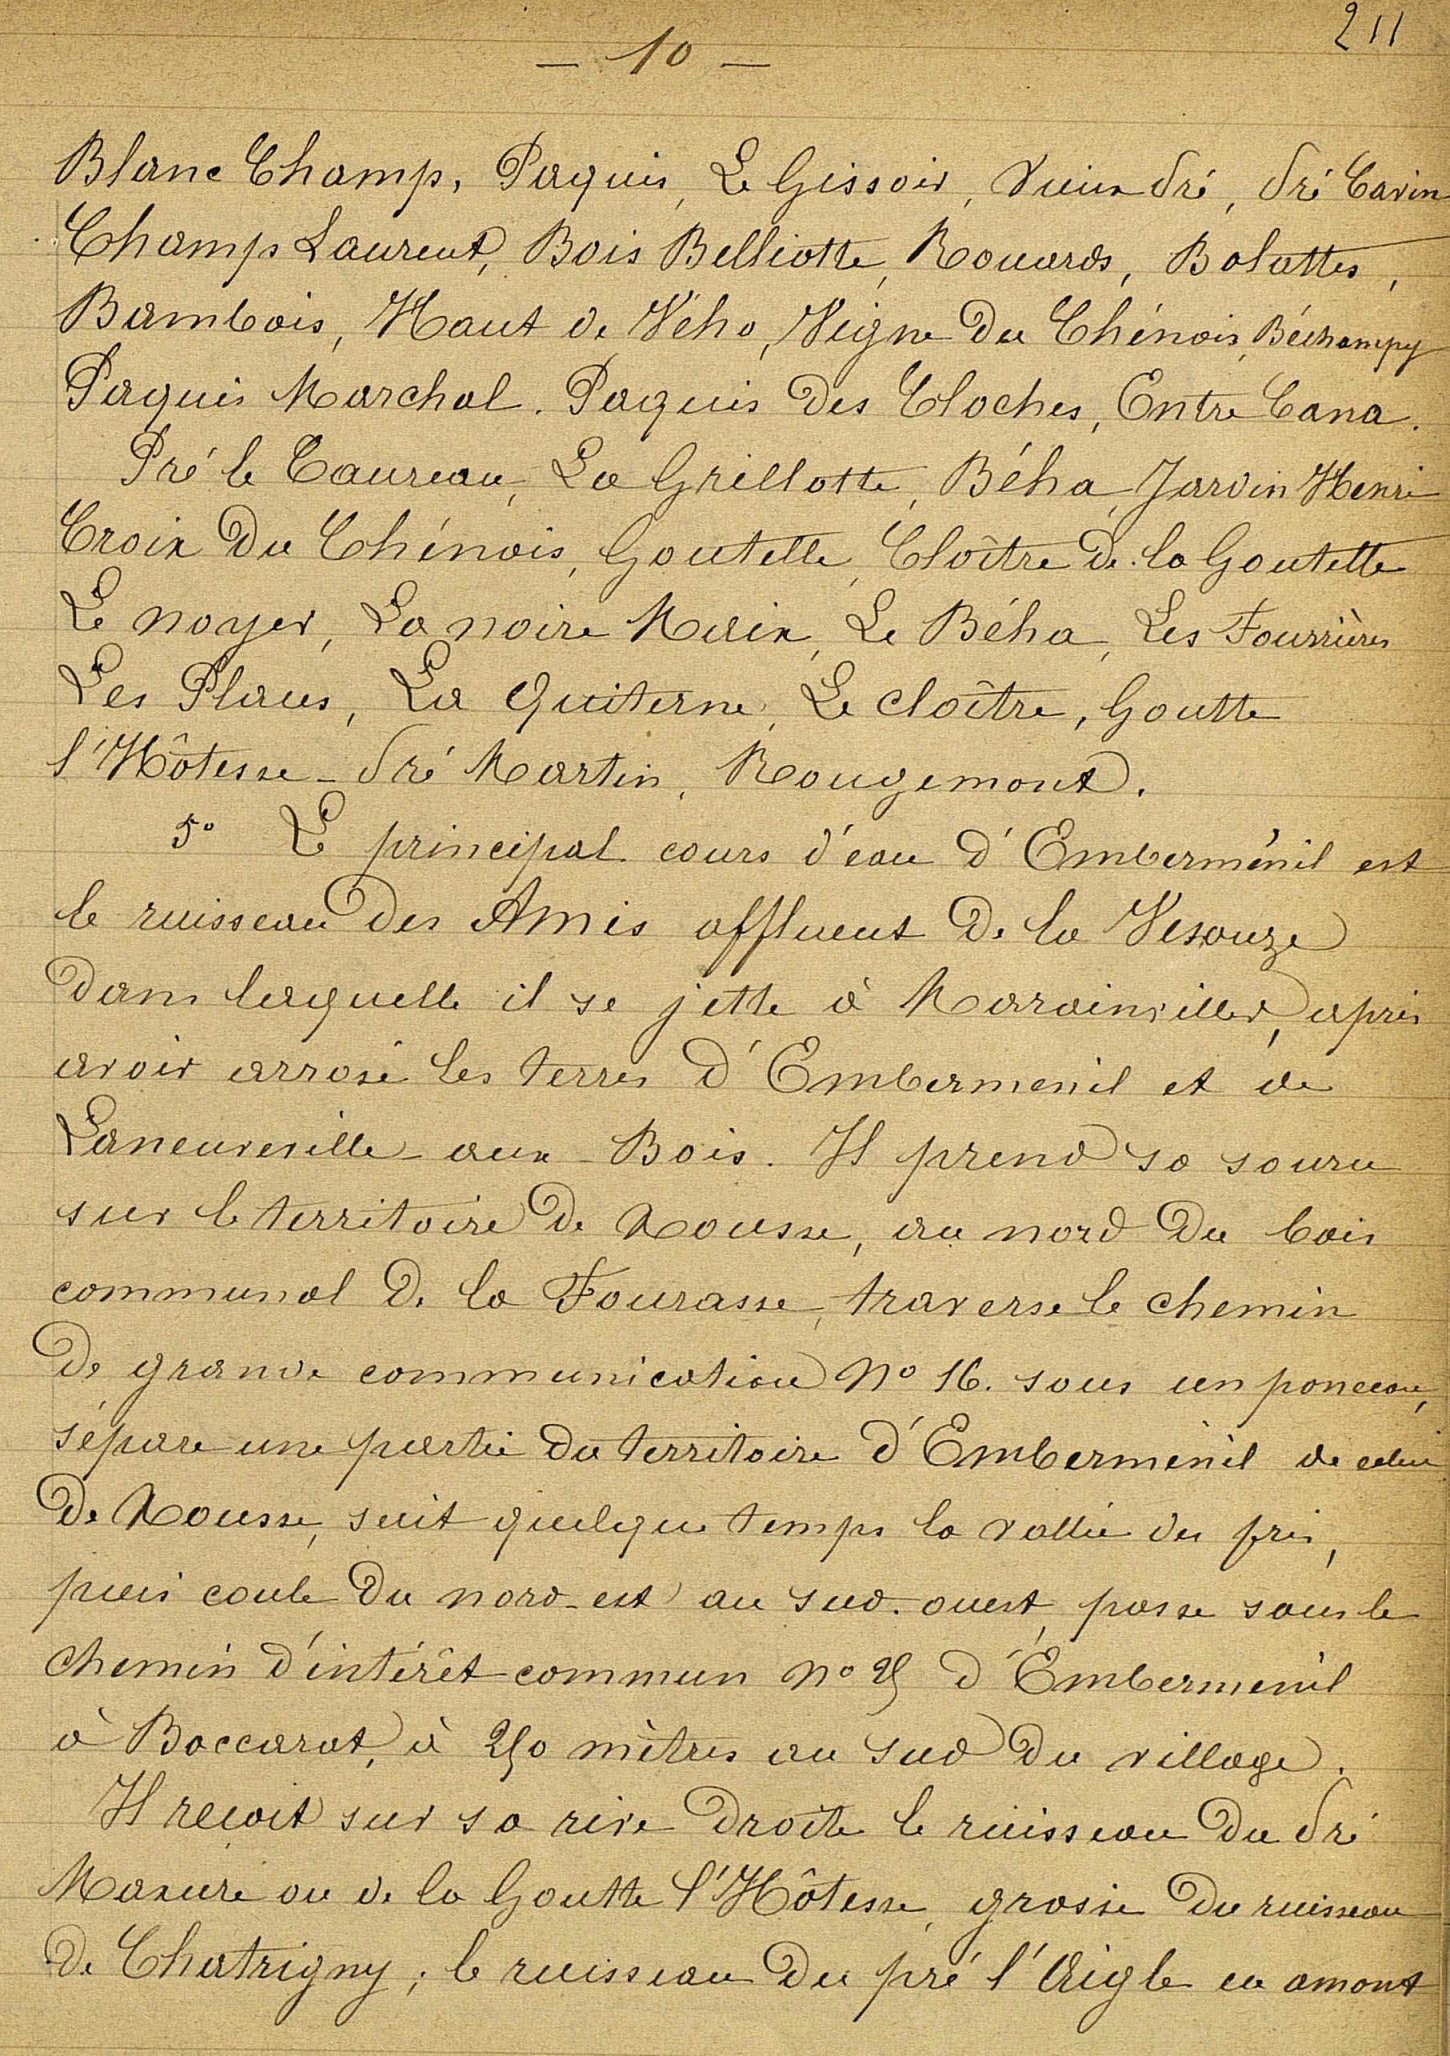 211
— 10 —
Blanc Champ, Paquis, Le Gissoir, Vieux Pré, Pré Cavin
Champ Laurent, Bois Belliotte, Rouards, Bolattes,
Bambois, Haut de Vého, Vigne du Chénois, Béchampy
Paquis Marchal. Paquis des Cloches, Entre Cana.
Pré le Taureau, La Grillotte, Béha, Jardin Henri
Croix du Chénois, Goutelle, Cloître de la Goutelle
Le noyer, La noire Maix, Le Béha, Les Fourrières
Les Places, La Quiterne, Le cloître, Goutte
l'Hôtesse - Pré Martin, Rougemont.
5° Le principal cours d'eau d'Emberménil est
le ruisseau des Amis affluent de la Vesouze
dans laquelle il se jette à Marainviller, après
avoir arrosé les terres d'Embermenil et de
Laneuveville-aux-Bois. Il prend sa source
sur le territoire de Xousse, au nord du bois
communal de la Fourasse, traverse le chemin
de grande communication No 16. sous un ponceau,
sépare une partie du territoire d'Emberménil de celui
de Xousse, suit quelque temps la vallée des prés,
puis coule du nord-est au sud-ouest, passe sous le
chemin d'intérêt commun No 25 d'Emberménil
à Baccarat, à 250 mètres au sud du village.
Il reçoit sur sa rive droite le ruisseau du Pré
Maxure ou de la Goutte l'Hôtesse, grossi du ruisseau
de Chatrigny; le ruisseau du pré l'Aigle en amont